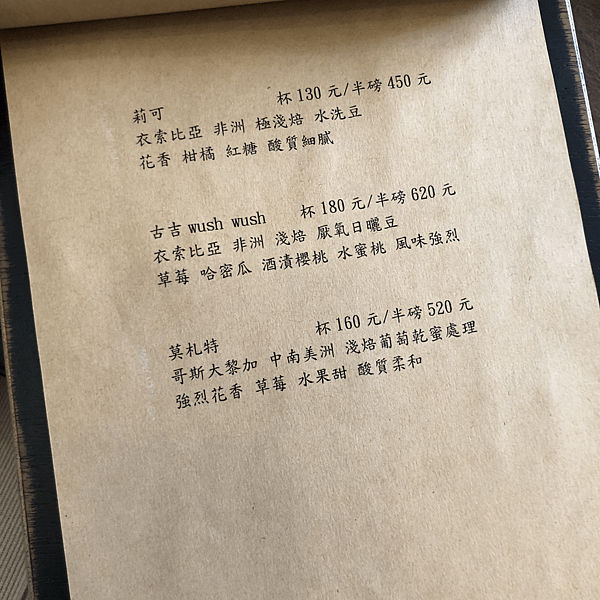 莉可 杯130元/半磅450元
衣索比亞 非洲 極淺焙 水洗豆
花香 柑橘 紅糖 酸質細膩
古吉 wush wush 杯180元/半磅620元
衣索比亞 非洲 淺焙 厭氧日曬豆
草莓 哈密瓜 酒漬櫻桃 水蜜桃 風味強烈
莫札特 杯160元/半磅520元
哥斯大黎加 中南美洲 淺焙葡萄乾蜜處理
強烈花香 草莓 水果甜 酸質柔和